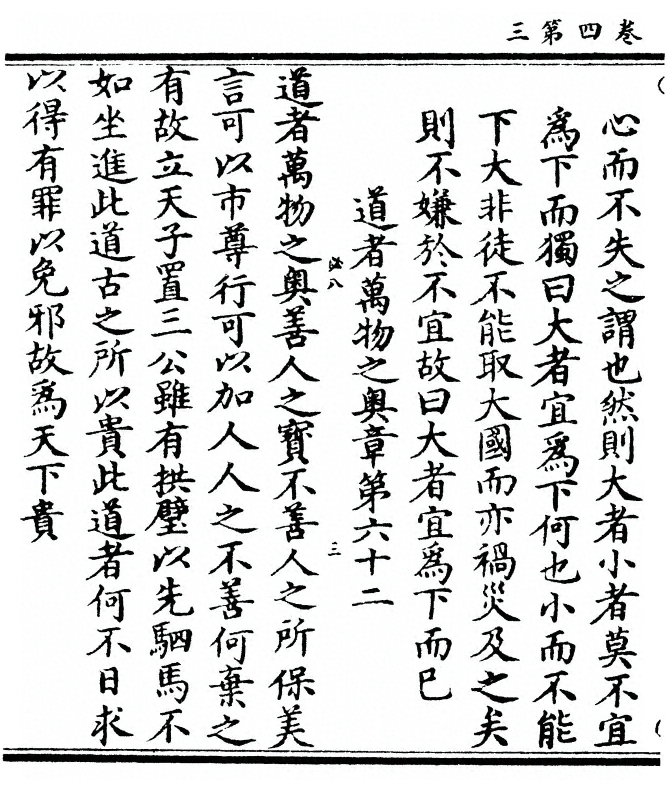 卷四第三
心而不失之謂也然則大者小者莫不宜
爲下而獨曰大者宜爲下何也小而不能
下大非徒不能取大國而亦禍災及之矣
則不嫌於不宜故曰大者宜爲下而已
道者萬物之奧章第六十二
三
道者萬物之奧善人之寶不善人之所保美
言可以市尊行可以加人人之不善何棄之
有故立天子置三公雖有拱璧以先駟馬不
如坐進此道古之所以貴此道者何不日求
以得有罪以免邪故爲天下貴